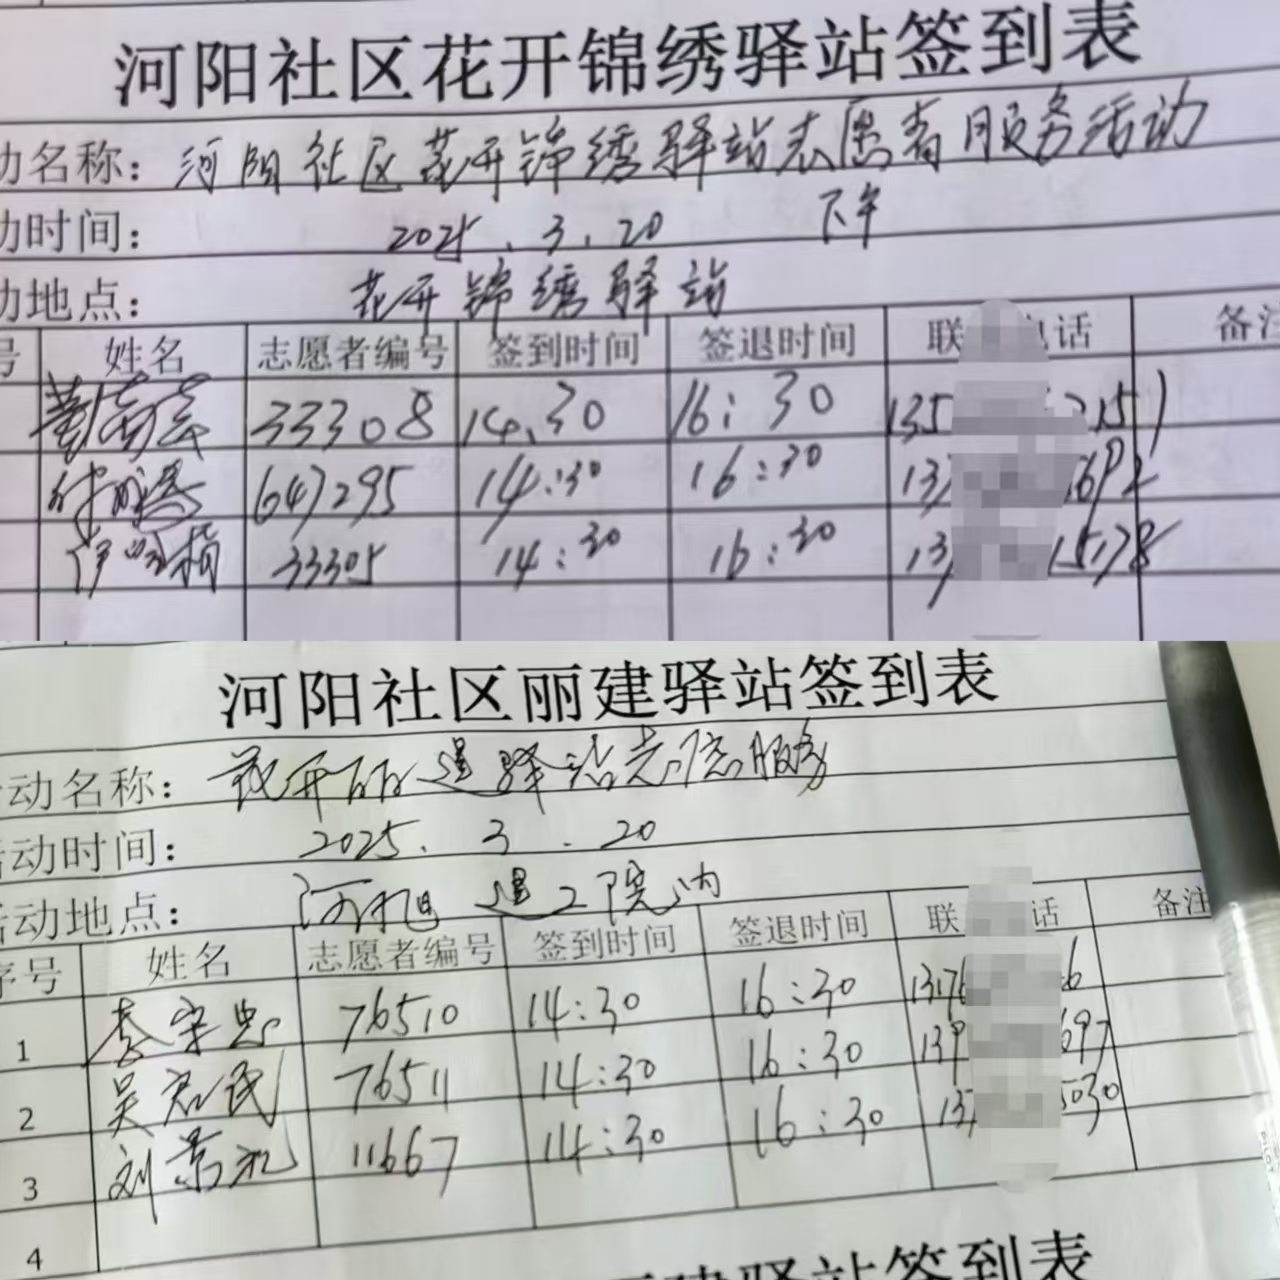 河阳社区花开锦绣驿站签到表
动名称：河阳社区花开锦绣驿站志愿者服务活动
动时间：2025.3.20 下午
动地点：花开锦绣驿站
号 姓名 志愿者编号 签到时间 签退时间 联 电话 备注
33308 14:30 16:30 135 2151
647295 14:30 16:30 137 692
33305 14:30 16:30 137 1578
河阳社区丽建驿站签到表
动名称： 驿站志愿服务
活动时间：2025.3.20
活动地点： 院内
序号 姓名 志愿者编号 签到时间 签退时间 联 话 备注
1 李宗 76510 14:30 16:30 1376 6
2 吴 民 76511 14:30 16:30 139 697
3 刘 11667 14:30 16:30 137 5030
4
建驿站签到表